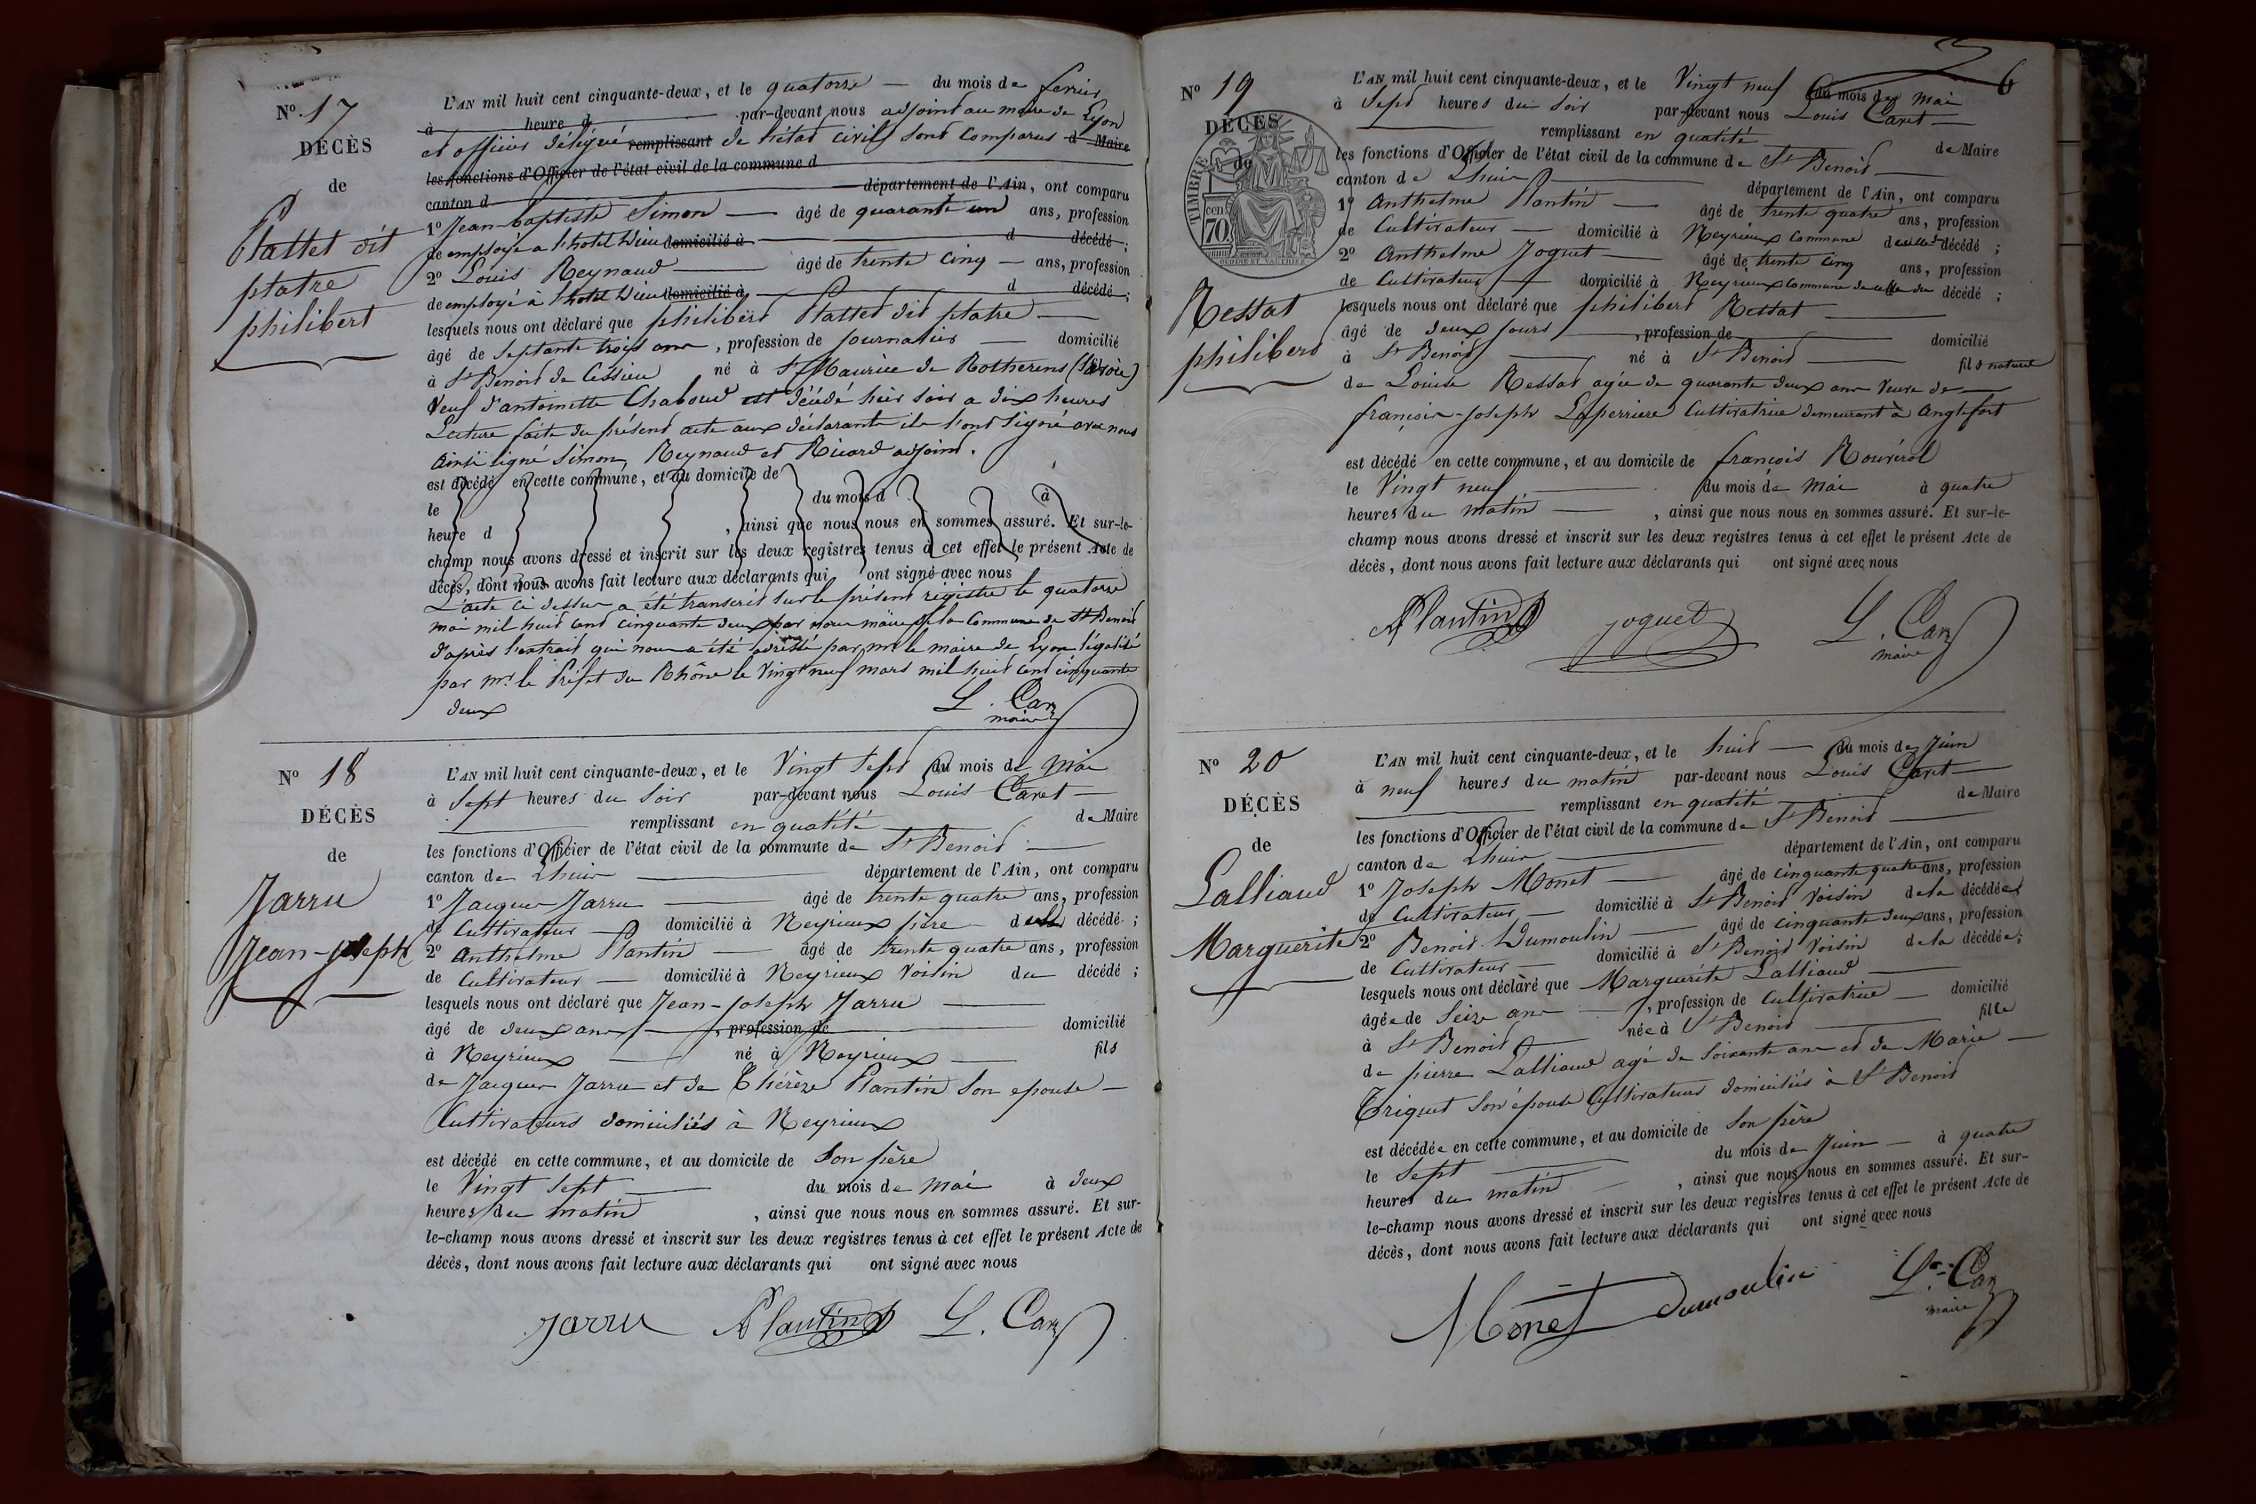 N° 17
DÉCÈS
de
Plattet dit
platre
philibert
L'AN mil huit cent cinquante-deux, et le quatorze — du mois de fevrier
à heure d par-devant nous adjoint au maire de Lyon
et officier délégué remplissant de l'état civil sont comparus d Maire
les fonctions d'Officier de l'état civil de la commune d
canton d département de l'Ain, ont comparu
1° Jean-baptiste Simon — âgé de quarante un ans, profession
de employé a l'hotel Dieu domicilié à d décédé ;
2° Louis Reynaud — âgé de trente cinq — ans, profession
de employé à l'hotel Dieu domicilié à d décédé ;
lesquels nous ont déclaré que philibert Plattet dit platre —
âgé de septante trois ans, profession de journalier — domicilié
à St Benoit de Cessieu né à St Maurice de Rotherens (Savoie)
Veuf d'antoinette Chaboud est décédé hier soir a dix heures
Lecture faite du présent acte aux déclarants ils l'ont signé avec nous
ainsi signé Simon, Reynaud et Ricard adjoint.
est décédé en cette commune, et au domicile de
le du mois d à
heure d , ainsi que nous nous en sommes assuré. Et sur-le-
champ nous avons dressé et inscrit sur les deux registres tenus à cet effet le présent Acte de
décès, dont nous avons fait lecture aux déclarants qui ont signé avec nous
L'acte ci dessus a été transcrit sur le présent registre le quatorze
mai mil huit cent cinquante deux par nous maire de la commune de St Benoit
d'après l'extrait qui nous a été adréssé par mr le maire de Lyon légalisé
par mr le Préfet du Rhône le vingt neuf mars mil huit cent cinquante
deux
L. Car
maire
N° 18
DÉCÈS
de
Jarru
Jean-joseph
L'AN mil huit cent cinquante-deux, et le Vingt sept du mois de mai
à Sept heures du soir par-devant nous Louis Caret —
remplissant en qualité de Maire
les fonctions d'Officier de l'état civil de la commune de St Benoit —
canton de Lhuis — département de l'Ain, ont comparu
1° Jacques Jarru — âgé de trente quatre ans, profession
de Cultivateur — domicilié à Neyrieux père d décédé ;
2° Anthelme Plantin — âgé de trente quatre ans, profession
de Cultivateur — domicilié à Neyrieux Voisin du décédé ;
lesquels nous ont déclaré que Jean-Joseph Jarru —
âgé de deux ans —, profession de domicilié
à Neyrieux — né à Neyrieux — fils
de Jacques Jarru et de Thérèze Plantin son epouse —
Cultivateurs domiciliés à Neyrieux
est décédé en cette commune, et au domicile de Son père
le Vingt sept — du mois de mai à deux
heures du matin , ainsi que nous nous en sommes assuré. Et sur-
le-champ nous avons dressé et inscrit sur les deux registres tenus à cet effet le présent Acte de
décès, dont nous avons fait lecture aux déclarants qui ont signé avec nous
Jarru APlantin L. Car
6
N° 19
DÉCÈS
de
TIMBRE
cen. 70.
Ressat
philibert
L'AN mil huit cent cinquante-deux, et le Vingt neuf du mois de mai
à Sept heures du soir par-devant nous Louis Caret —
remplissant en qualité de Maire
les fonctions d'Officier de l'état civil de la commune de St Benoit —
canton de Lhuis — département de l'Ain, ont comparu
1° Anthelme Plantin — âgé de trente quatre ans, profession
de Cultivateur — domicilié à Neyrieux commune décédé ;
2° Anthelme Joguet — âgé de trente cinq ans, profession
de Cultivateur — domicilié à Neyrieux commune de celle du décédé ;
lesquels nous ont déclaré que philibert Ressat —
âgé de deux jours —, profession de domicilié
à St Benoit — né à St Benoit — fils naturel
de Louise Ressat agée de quarante deux ans veuve de —
françois-joseph Laperriere Cultivatrice demeurant à Anglefort
est décédé en cette commune, et au domicile de françois Rouvérol
le Vingt neuf — du mois de mai à quatre
heures du matin — , ainsi que nous nous en sommes assuré. Et sur-le-
champ nous avons dressé et inscrit sur les deux registres tenus à cet effet le présent Acte de
décès, dont nous avons fait lecture aux déclarants qui ont signé avec nous
APlantin joguet L. Car
maire
N° 20
DÉCÈS
de
Lalliaud
Marguerite
L'AN mil huit cent cinquante-deux, et le huit — du mois de Juin
à neuf heures du matin par-devant nous Louis Caret —
remplissant en qualité de Maire
les fonctions d'Officier de l'état civil de la commune de St Benoit —
canton de Lhuis — département de l'Ain, ont comparu
1° Joseph Monet — âgé de cinquante quatre ans, profession
de Cultivateur — domicilié à St Benoit Voisin de la décédée ;
2° Benoit Dumoulin — âgé de cinquante deux ans, profession
de Cultivateur — domicilié à St Benoit Voisin de la décédée ;
lesquels nous ont déclaré que Marguerite Lalliaud —
âgée de Seize ans —, profession de Cultivatrice — domicilié
à St Benoit — née à St Benoit — fille
de pierre Lalliaud agé de soixante ans et de Marie —
Triquet son épouse Cultivateurs domiciliés à St Benoit
est décédée en cette commune, et au domicile de Son père
le Sept — du mois de Juin — à quatre
heures du matin — , ainsi que nous nous en sommes assuré. Et sur-
le-champ nous avons dressé et inscrit sur les deux registres tenus à cet effet le présent Acte de
décès, dont nous avons fait lecture aux déclarants qui ont signé avec nous
Monet dumoulin L. Car
maire